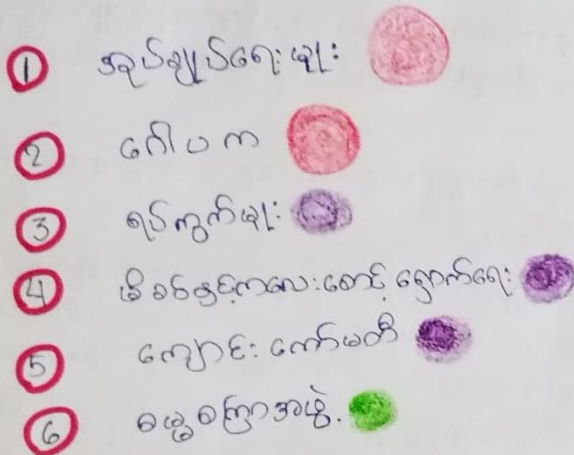 ① အုပ်ချုပ်ရေးမှုး
② ဂေါပက
③ ရပ်ကွက်မှုး
④ မိခင်နှင့်ကလေးစောင့်ရှောက်ရေး
⑤ ကျောင်းကော်မတီ
⑥ ဓမ္မစကြာအဖွဲ့.